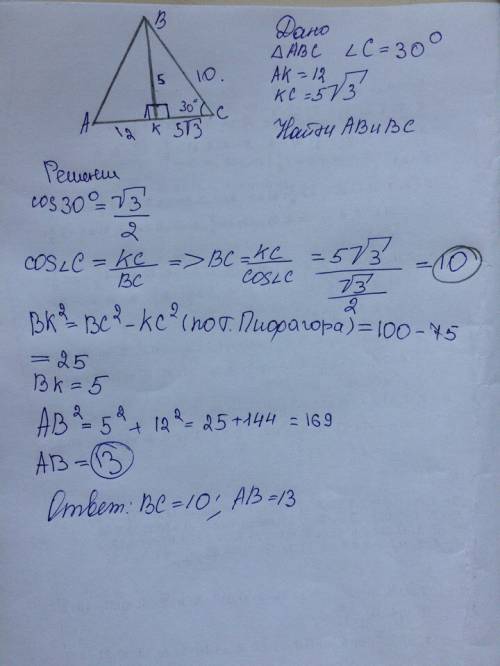 B
5
10.
30°
A
12
K
5√3
C
Дано
△ABC ∠C = 30°
AK = 12
KC = 5√3
Найти AB и BC
Решение
cos30° = √3/2
cos∠C = KC/BC => BC = KC/cos∠C = 5√3/(√3/2) = 10
BK² = BC² - KC² (по т. Пифагора) = 100 - 75
= 25
BK = 5
AB² = 5² + 12² = 25 + 144 = 169
AB = 13
Ответ: BC = 10; AB = 13